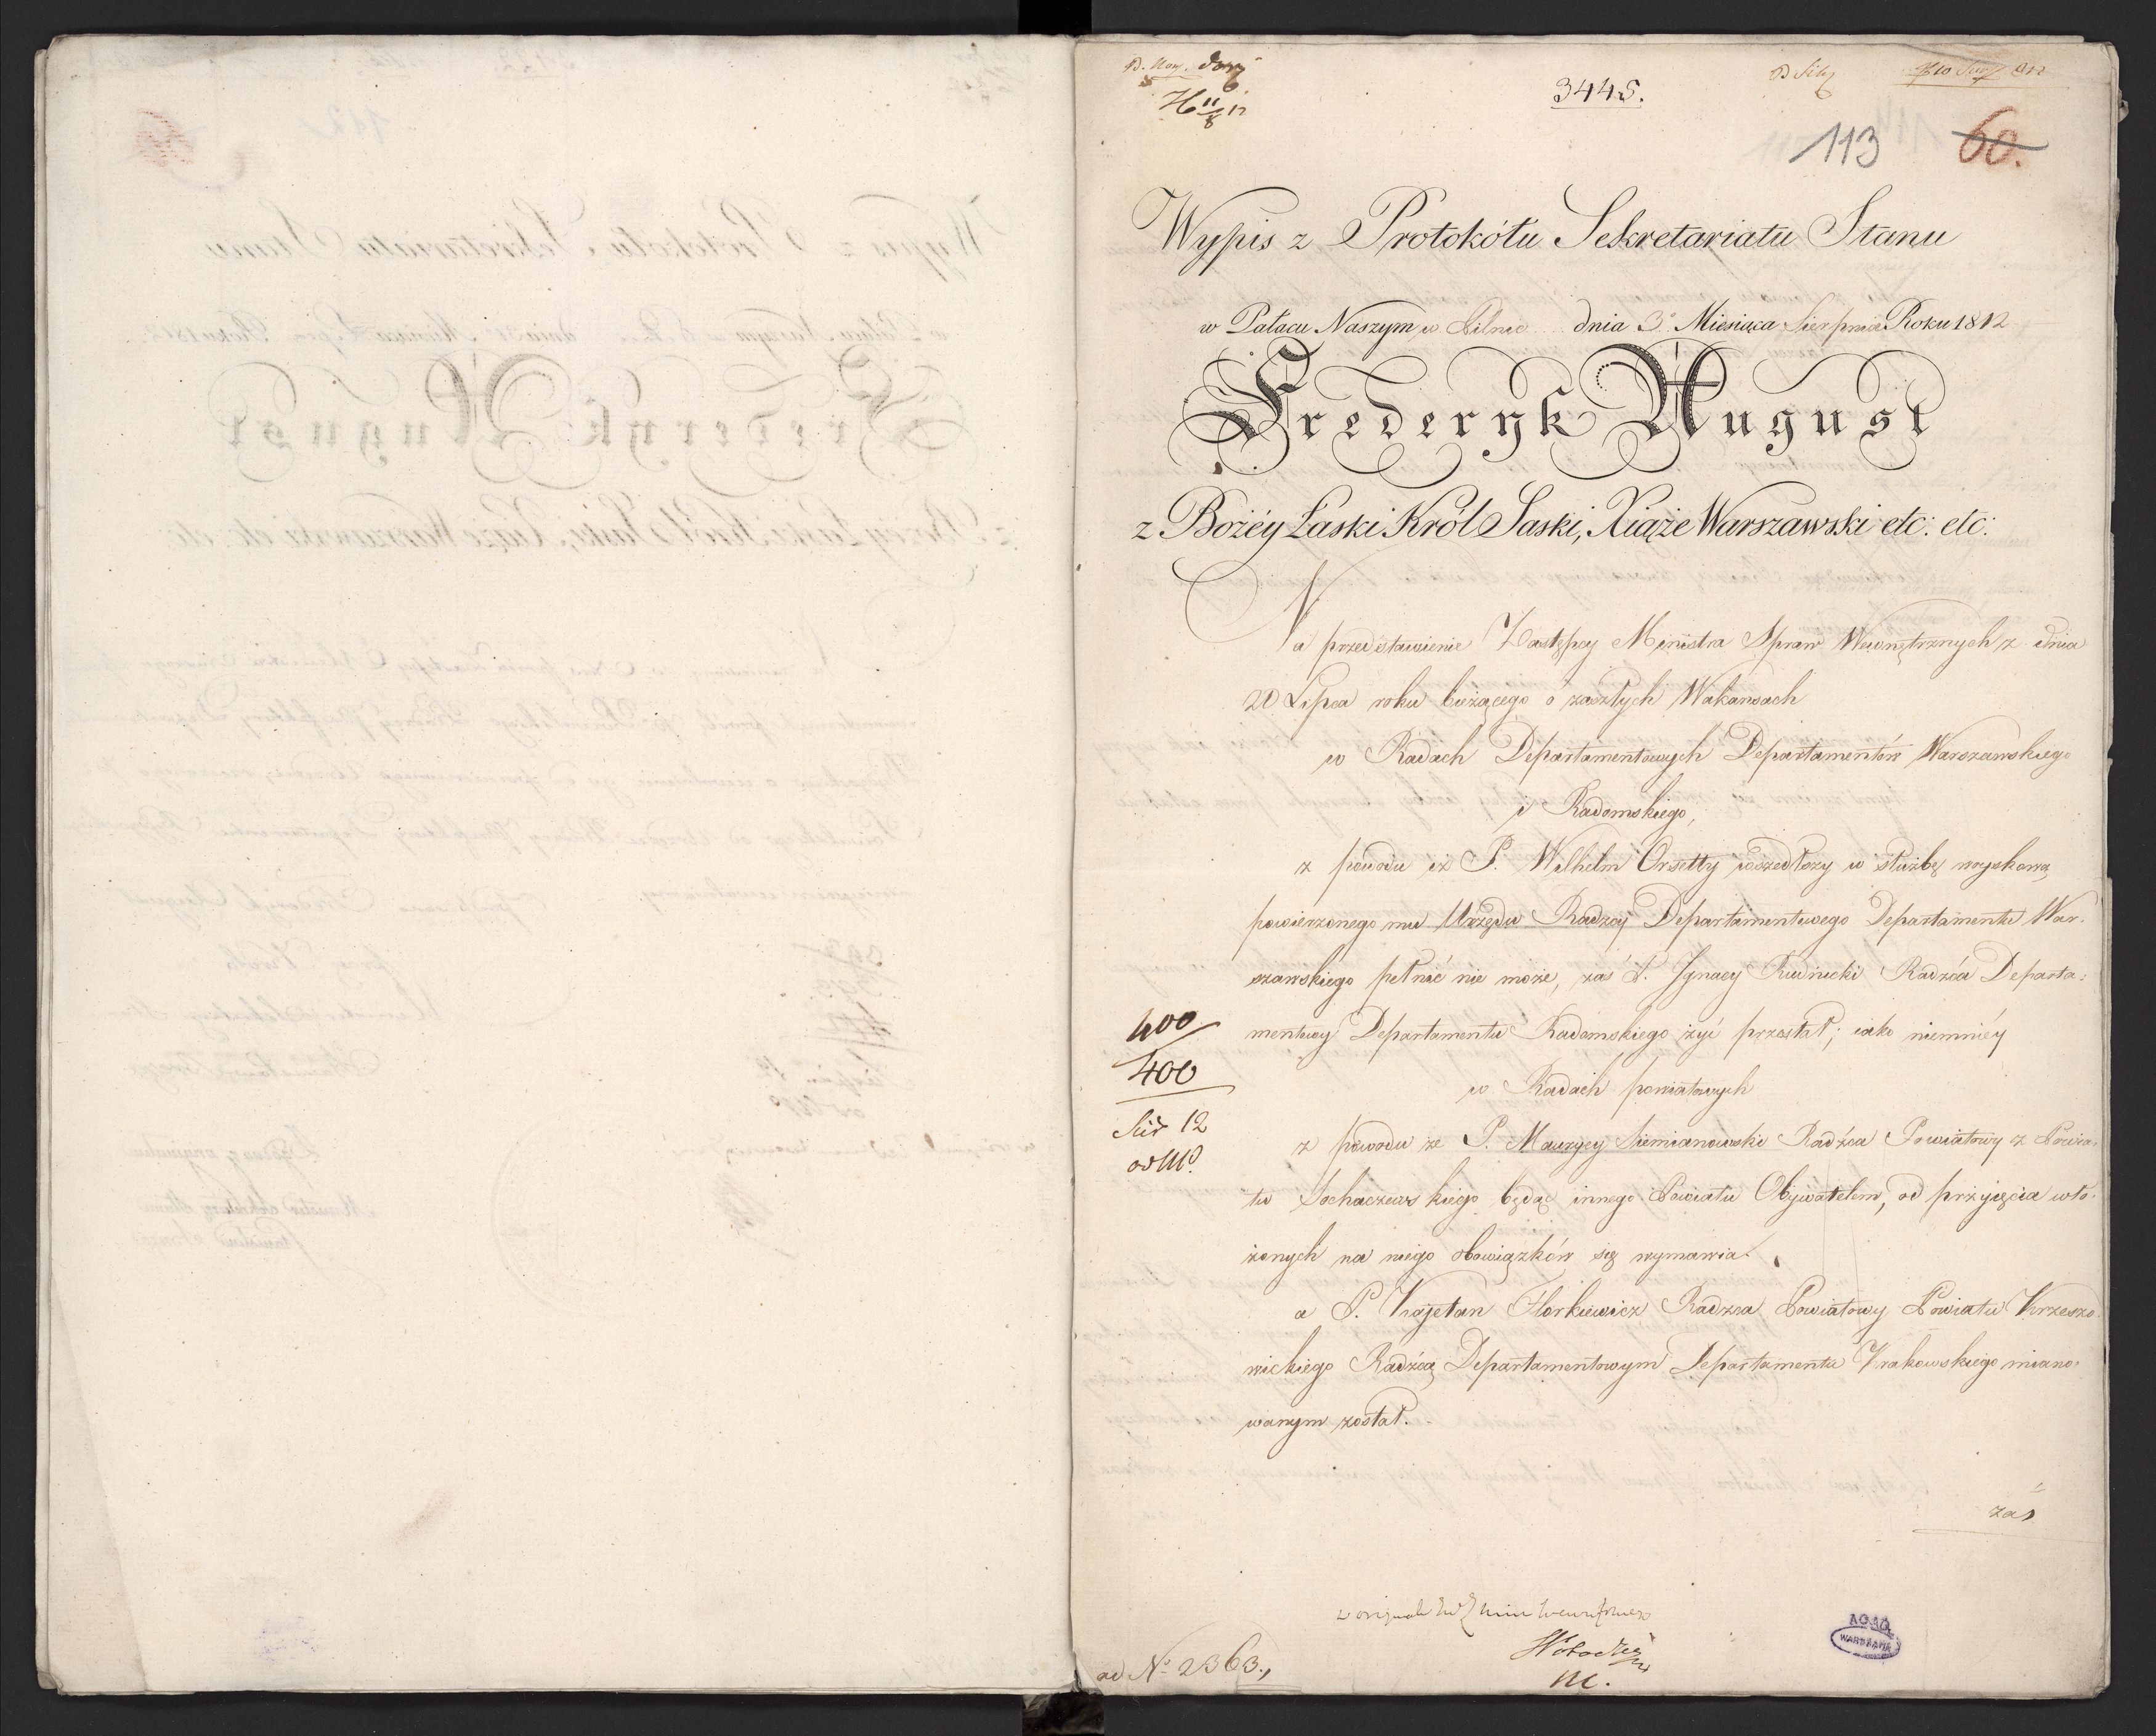 3445.
113 60.
Wypis z Protokółu Sekretariatu Stanu
w Pałacu Naszym w Pilnic dnia 3° Miesiąca Sierpnia Roku 1812
Frederyk August
z Bożéy Łaski Król Saski, Xiąże Warszawski etc: etc:
Na przedstawienie Zastępcy Ministra Spraw Wewnętrznych z dnia
20 Lipca roku bieżącego o zaszłych Wakansach
w Radach Departamentowych Departamentów Warszawskiego
i Radomskiego,
z powodu iż P. Wilhelm Orsetty wszedłszy w służbę woyskową
powierzonego mu Urzędu Radzcy Departamentowego Departamentu War-
szawskiego pełnić nie może, zaś P. Ignacy Rudnicki Radzca Departa-
mentowy Departamentu Radomskiego żyć przestał; iako niemniéy
400
400
w Radach powiatowych
Sier 12
z powodu że P. Maurycy Siemianowski Radzca Powiatowy z Powia-
tu Sochaczewskiego będąc innego Powiatu Obywatelem, od przyięcia wło-
żonych na niego obowiązków się wymawia.
a P. Kajetan Florkiewicz Radzca Powiatowy Powiatu Krzeszo-
wickiego Radzcą Departamentowym Departamentu Krakowskiego miano-
wanym został.
zaś
ad N° 2363.,
AGAD
WARSZAWA